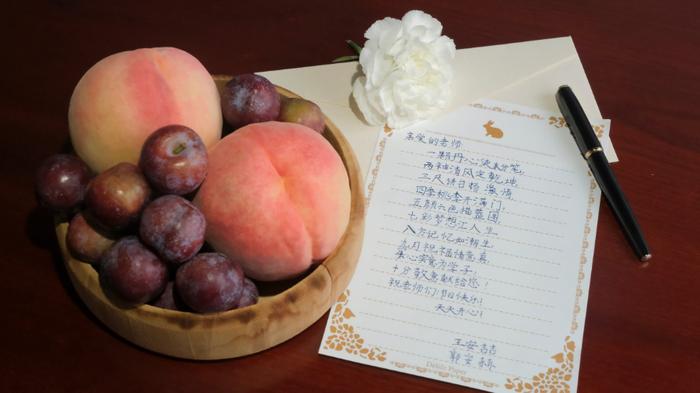 亲爱的老师
一颗丹心染粉笔,
两袖清风定乾坤.
三尺讲日抒激情,
四季桃李满门,
五颜六色描蓝图,
七彩梦想汇人生
八方记忆如潮生
九月祝福诸意真,
十分敬意献给您!
祝老师们节日快乐!
天天开心!
王安喆
Delile Paper